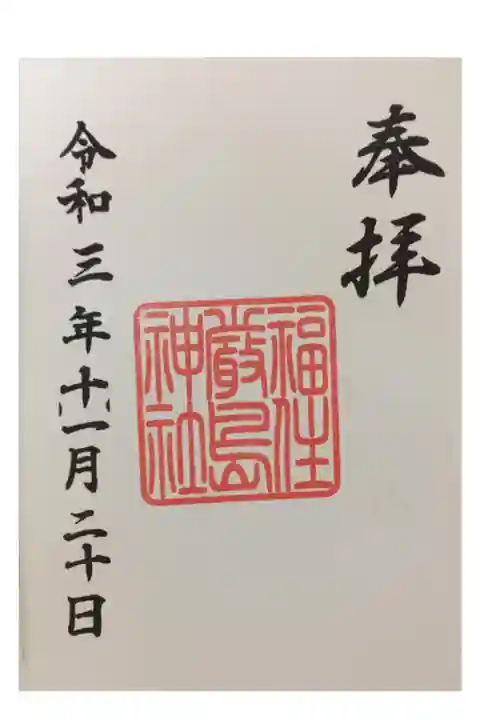 奉拝
福住
厳島
神社
令和三年十一月二十日